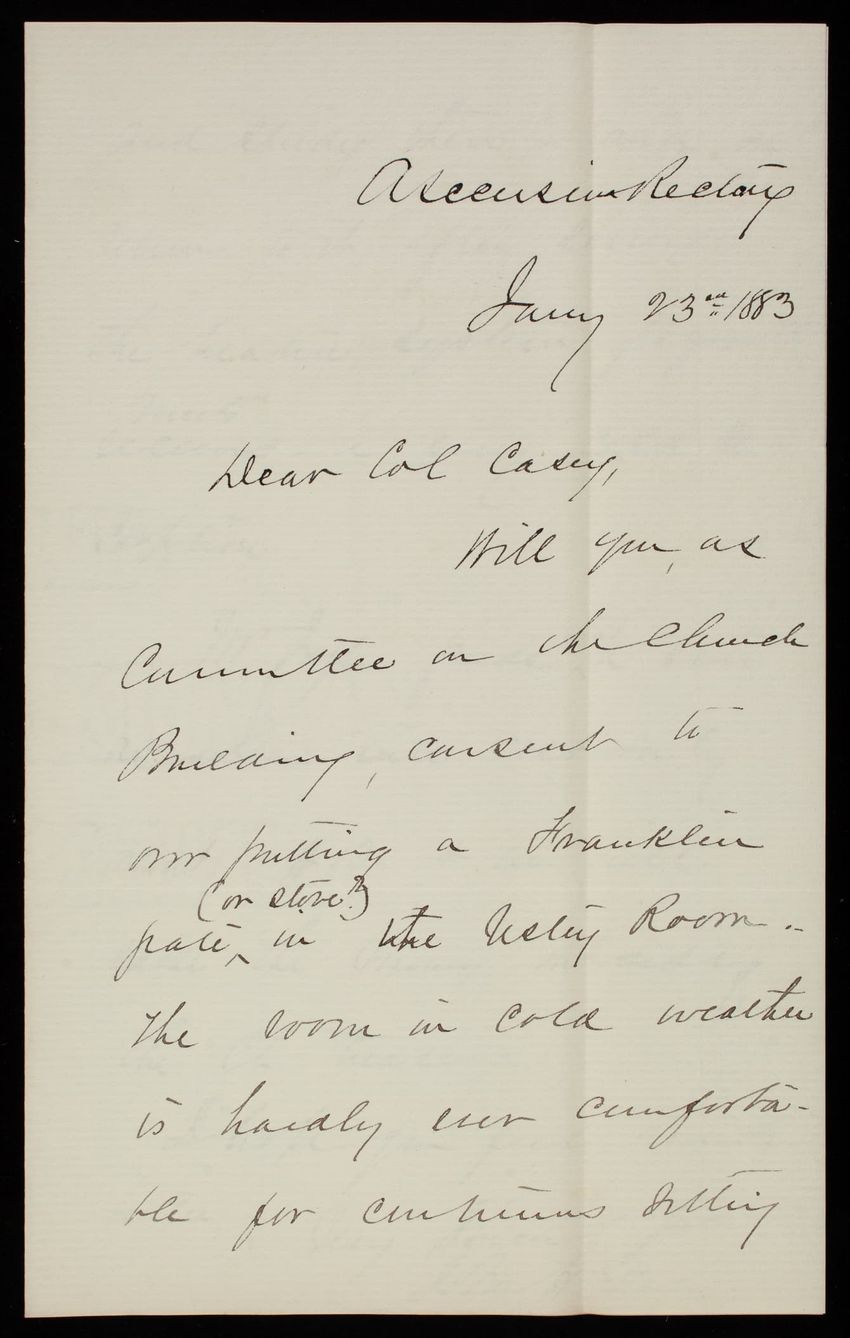 Ascension Rectory
Jany 23rd 1883
Dear Col Casey,
Will you, as
Committee on the Church
Building, consent to
our putting a Franklin
(or stove?)
grate, in the Vestry Room.
The room in cold weather
is hardly ever comforta-
ble for continuous sitting